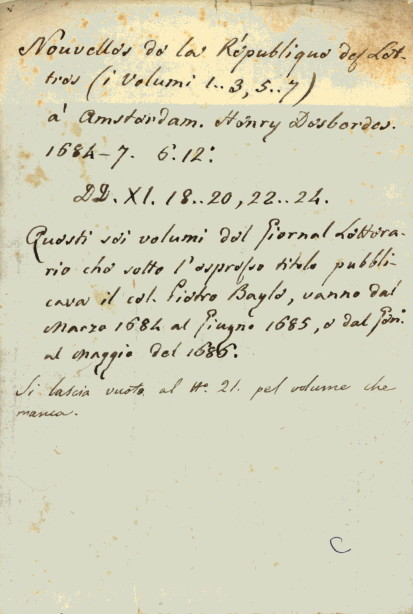 Nouvelles de la République des Let-
tres (i volumi 1..3, 5..7)
à Amsterdam. Henry Desbordes.
1684-7. 6. 12°:
DD. XI. 18..20, 22..24.
Questi sei volumi del Giornal Lettera-
rio che sotto l'espresso titolo pubbli-
cava il cel. Pietro Bayle, vanno dal
Marzo 1684 al Giugno 1685, e dal Gen:
al Maggio del 1686:
Si lascia vuoto al N°. 21. pel volume che
manca.
C